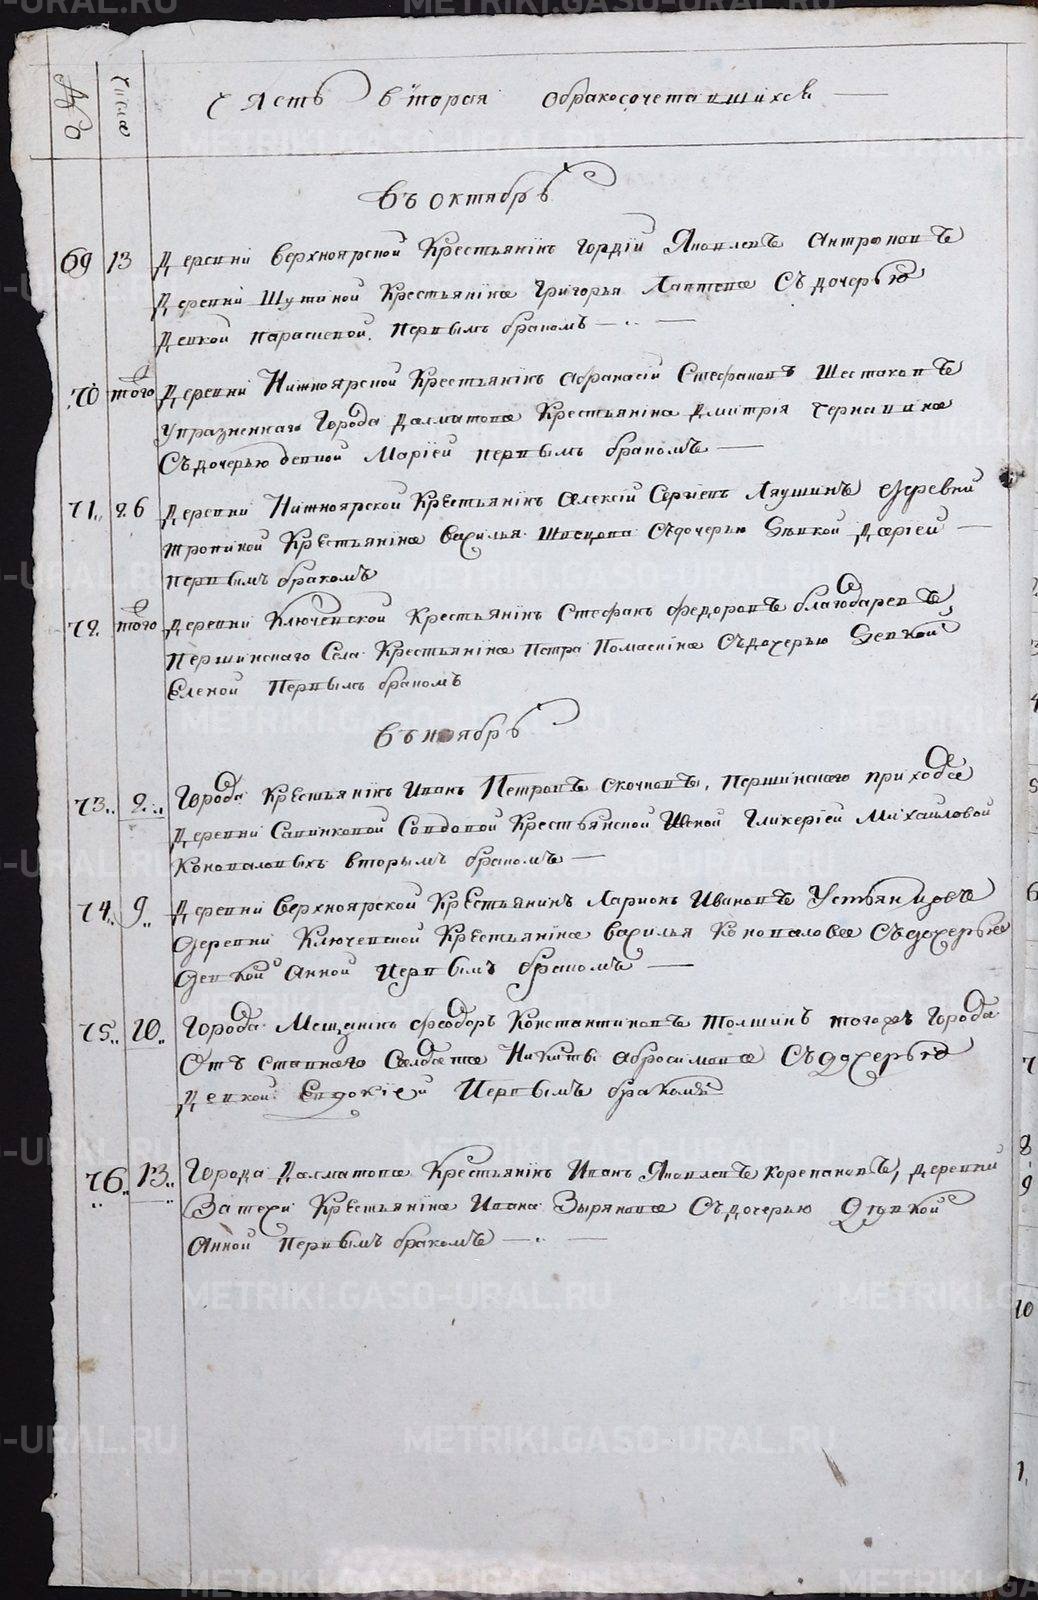 METRIKI.GASO-URAL.RU
№
числа
Часть вторая обракосочетавшихся
Въ октябрѣ
69 13 Деревни Верхноярской Крестьянінъ Гордій Яковлевъ Антроповъ
Деревни Шутиной Крестьяніна Григорья Лаптева Съдочерью
Девкой Парасковой. Первымъ бракомъ
70 того Деревни Нижноярской Крестьянінъ Афанасій Стефановъ Шестаковъ
Упразненнаго Города Далматова Крестьяніна Дмитрія Чернавина
Съдочерью девкой Маріей первымъ бракомъ
71 26 Деревни Нижноярской Крестьянінъ Алексій Сергіевъ Ляушинъ Деревни
Тропиной Крестьяніна Вахилья Швецова Съдочерью Девкой Даріей
первымъ бракомъ
72 того Деревни Ключевской Крестьянінъ Стефанъ Федоровъ благодаревъ,
Першинскаго Села Крестьяніна Петра Помаскіна Съдочерью Девкой
Еленой Первымъ бракомъ
Въ ноябрѣ
73 2 Города Крестьянінъ Иванъ Петровъ Скочковъ, Першинскаго прихода
Деревни Савинковой Вдовой Крестьянской Женой Гликеріей Михайловой
Коноваловыхъ вторымъ бракомъ
74 9 Деревни Верхноярской Крестьянинъ Ларионъ Ивановъ Устьянцовъ
Деревни Ключевской Крестьяніна Вахилья Коновалова Съдочерью
Девкой Анной Первымъ бракомъ
75 20 Города Мещанінъ Феодоръ Константиновъ Толшинъ тогожъ Города
Отъ ставнаго Салдата Никиты Абросимова Съдочерью
Девкой Евдокіей Первымъ бракомъ
76 13 Города Далматова Крестьянінъ Иванъ Яковлевъ Корепановъ, деревни
Затечи Крестьяніна Ивана Зырянова Съдочерью Девкой
Анной первымъ бракомъ